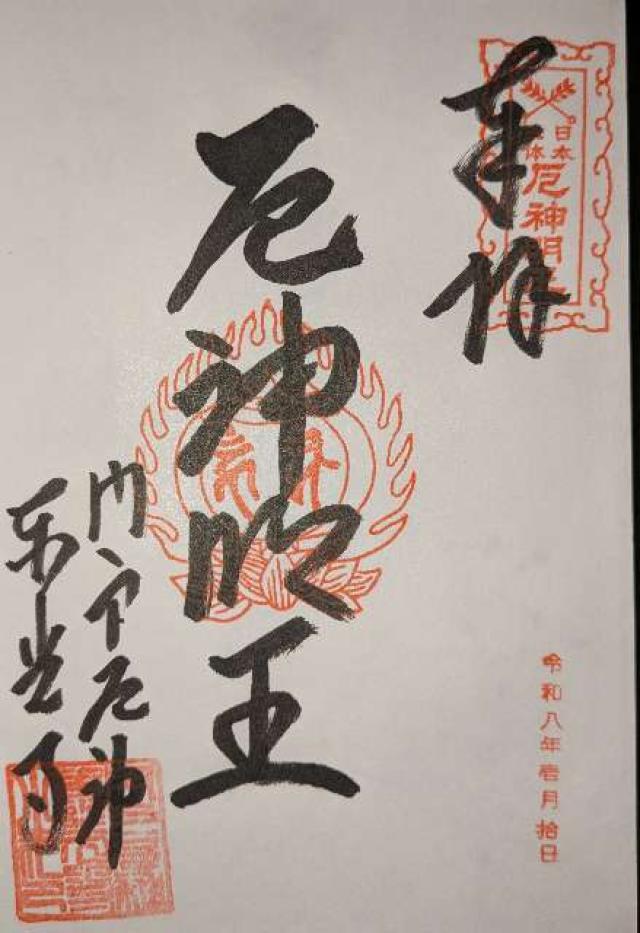 奉拝
日本
体
厄神明王
厄神明王
門戸厄神
東光寺
令和八年壱月拾日